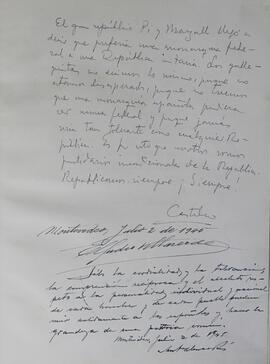 El gran repúblico Pí y Margall llegó a
decir que prefería una monarquía fede-
ral a una República unitaria. Los galle-
guistas no decimos lo mismo, porque no
estamos desesperados, porque no creemos
que una monarquía española pudiera
ser nunca federal y porque jamás
sería tan tolerante como cualquier Re-
pública. Es por esto que nosotros somos
partidarios incondicionales de la República.
Republicanos siempre y Siempre!
Castelao
Montevideo, Julio 2 de 1945
Sólo la cordialidad, y la tolerancia,
la comprensión recíproca y el absoluto res-
peto a la personalidad individual y nacional
de cada hombre y de cada pueblo pueden
unir solidamente a los españoles y hacer la
grandeza de una patria común.
Montevideo, Julio 2 de 1945